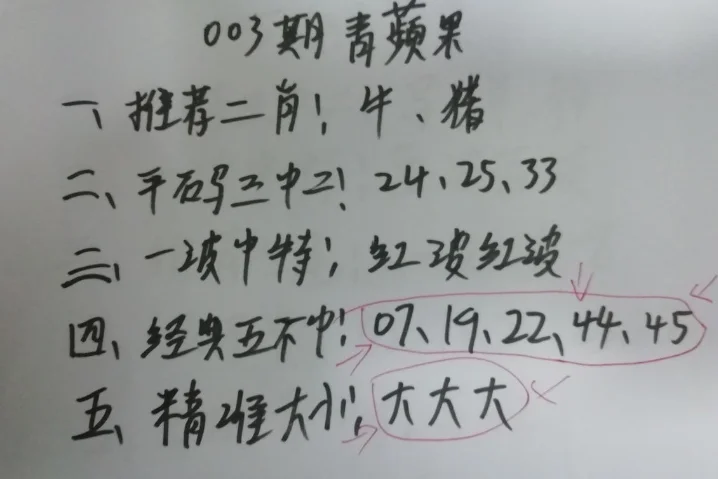 003期青蘋果
一、推荐二肖！牛、猪
二、平码三中二！24、25、33
三、一波中特！红波红波
四、经典五不中！07、19、22、44、45
五、精准大小！大大大